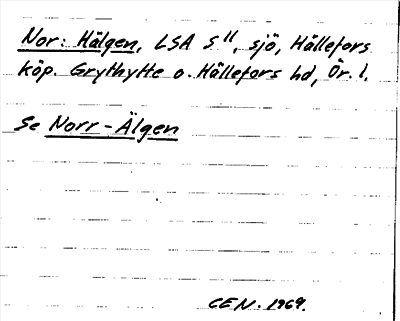 Nor: Hälgen, LSA S¹¹, sjö, Hällefors
köp. Grythytte o. Hällefors hd, Ör. l.
Se Norr-Älgen
CEN. 1969.